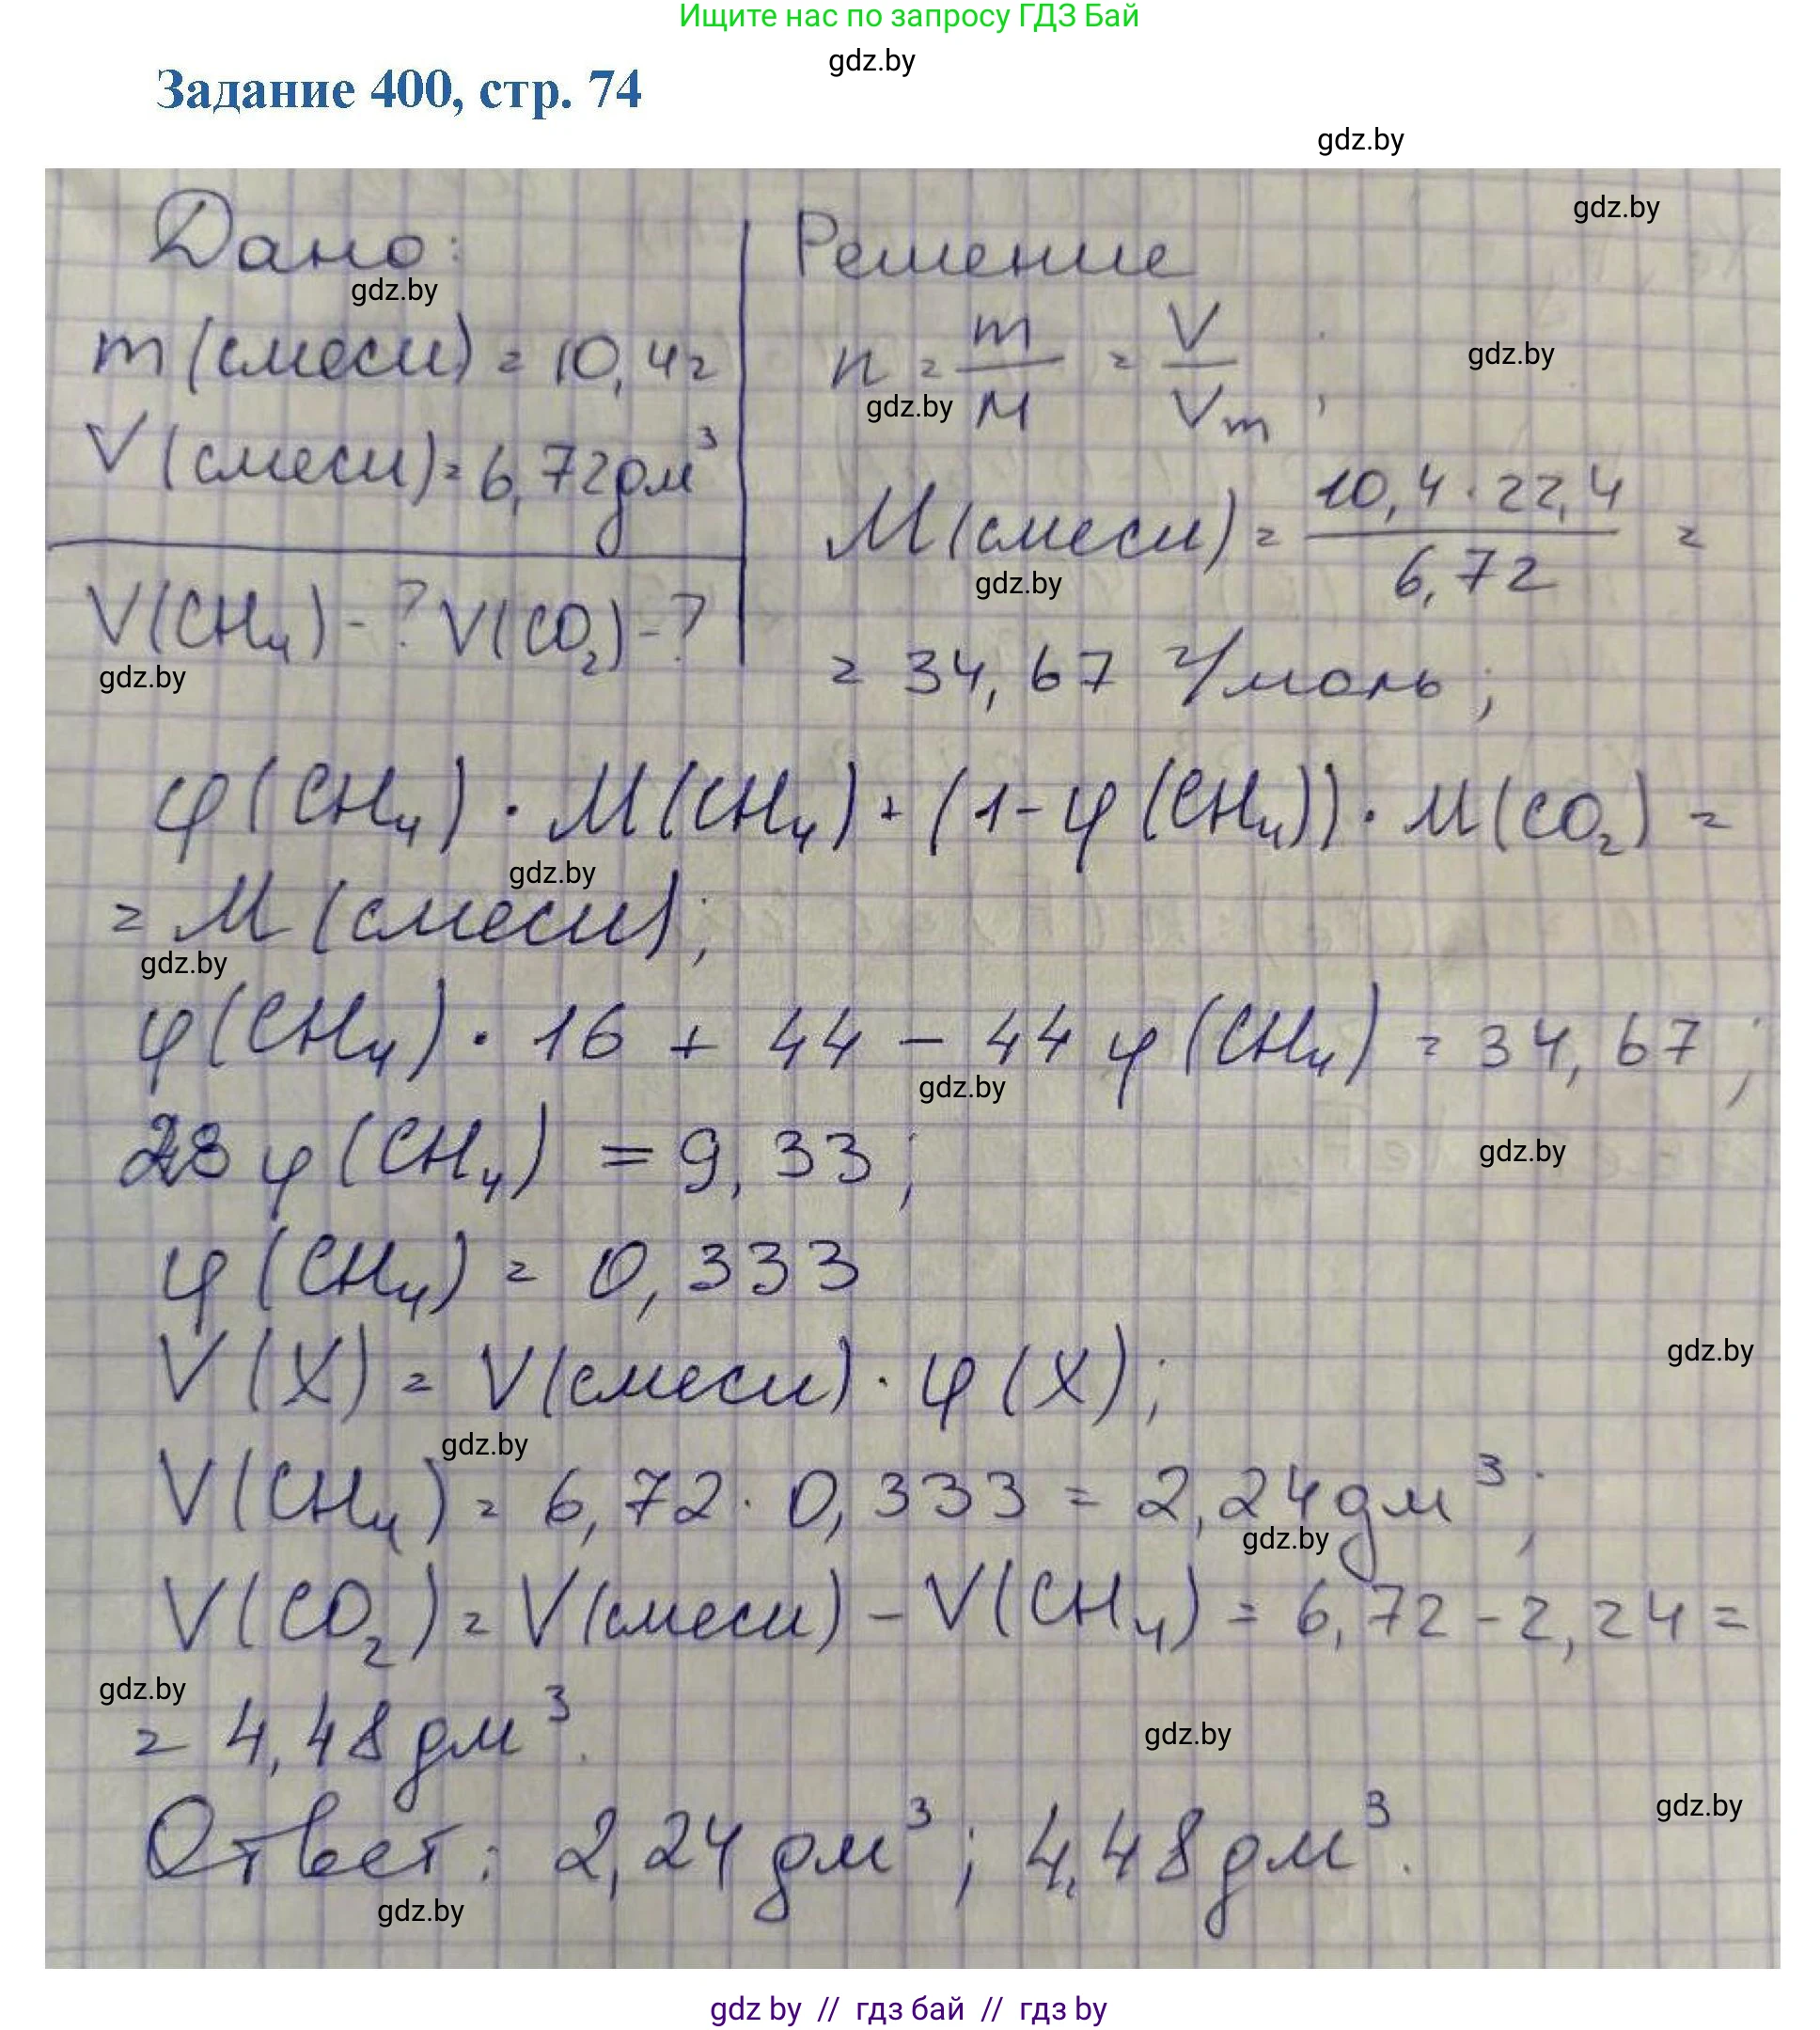 Ищите нас по запросу ГДЗ Бай
gdz.by
Задание 400, стр. 74
gdz.by
gdz.by
Дано:
gdz.by
m (смеси) = 10,4г
V (смеси) = 6,72дм³
V(CH₄) - ? V(CO₂) - ?
gdz.by
Решение
n = m/M = V/Vm ;
gdz.by
gdz.by
M (смеси) = 10,4 · 22,4 / 6,72 =
gdz.by
= 34,67 г/моль ;
φ(CH₄) · M(CH₄) + (1 - φ(CH₄)) · M(CO₂) =
gdz.by
= M (смеси);
gdz.by
φ(CH₄) · 16 + 44 - 44 φ(CH₄) = 34,67 ;
gdz.by
28 φ(CH₄) = 9,33 ;
gdz.by
φ(CH₄) = 0,333
V(X) = V(смеси) · φ(X);
gdz.by
gdz.by
V(CH₄) = 6,72 · 0,333 = 2,24 дм³ ;
gdz.by
V(CO₂) = V(смеси) - V(CH₄) = 6,72 - 2,24 =
gdz.by
= 4,48 дм³.
gdz.by
gdz.by
Ответ: 2,24 дм³ ; 4,48 дм³.
gdz.by
gdz by // гдз бай // гдз by